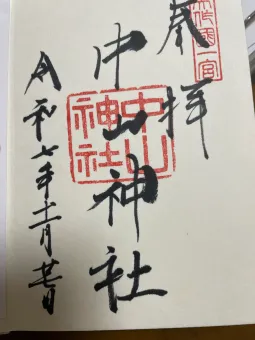 作國一宮
奉拝
中山神社
中山神社
令和七年十二月廿日